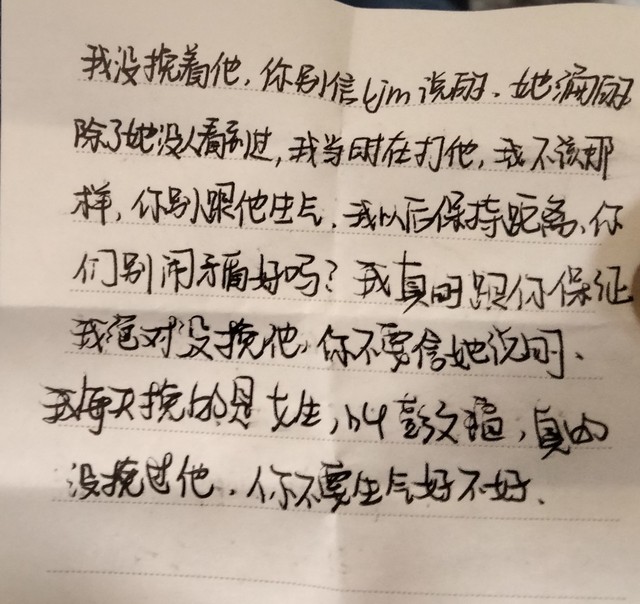 我没挽着他，你别信ljm说的、她漏的
除了她没人看到过，我当时在打他，我不该那
样，你别跟他生气、我以后保持距离、你
们别闹矛盾好吗？我真的跟你保证
我绝对没挽他，你不要信她说的、
我每天挽的是女生，叫彭文，真的
没挽过他，你不要生气好不好、